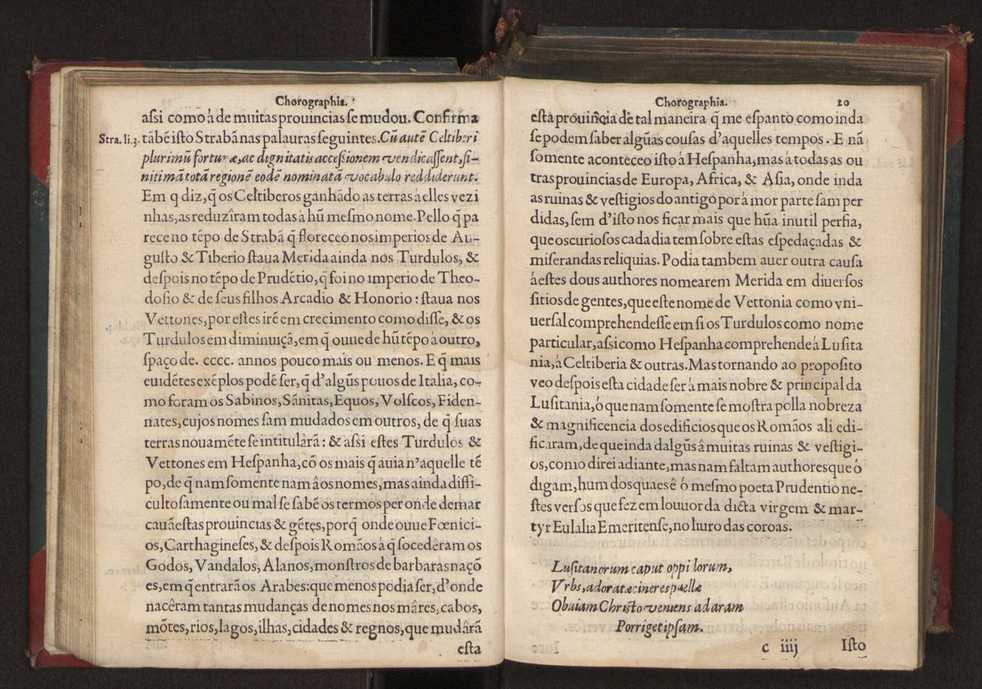 Chorographia.
aſsi como à de muitas prouincias ſe mudou. Confirma
Stra. li. 3. tãbē iſto Strabã nas palauras ſeguintes. Cũ autē Celtiberi
plurimũ fortunæ, ac dignitatis acceſsionem vendicaſſent, fi-
nitimã totã regionē eodē nominatã vocabulo reddiderunt.
Em q diz, q̃ os Celtiberos ganhãdo as terras à elles vezi
nhas, as reduzîram todas à hũ meſmo nome. Pello q̃ pa
rece no tẽpo de Strabã q̃ floreceo nos imperios de Au-
guſto & Tiberio ſtaua Merida ainda nos Turdulos, &
deſpois no tẽpo de Prudẽtio, q̃ foi no imperio de Theo-
doſio & de ſeus filhos Arcadio & Honorio: ſtaua nos
Vettones, por eſtes irẽ em crecimento como diſſe, & os
Turdulos em diminuiçã, em q̃ ouue de hũ tẽpo à outro,
ſpaço de. cccc. annos pouco mais ou menos. E q̃ mais
euidẽtes exẽplos podẽ ſer, q̃ d'algũs pouos de Italia, co-
mo foram os Sabinos, Sãnitas, Equos, Volſcos, Fiden-
nates, cujos nomes ſam mudados em outros, de q̃ ſuas
terras nouamẽte ſe intitulàrã: & aſsi eſtes Turdulos &
Vettones em Heſpanha, cõ os mais q̃ auia n'aquelle tẽ
po, de q̃ nam ſomente nam âos nomes, mas ainda diffi-
cultoſamente ou mal ſe ſabẽ os termos per onde demar
cauã eſtas prouincias & gẽtes, porq̃ onde ouue Fœnici-
os, Carthagineſes, & deſpois Romãos à q̃ ſocedêram os
Godos, Vandalos, Alanos, monſtros de barbaras naçõ
es, em q̃ entrarã os Arabes: que menos podia ſer, d'onde
nacêram tantas mudanças de nomes nos mâres, cabos,
mõtes, rios, lagos, ilhas, cidades & regnos, que mudârã
eſta
Chorographia. 20
eſta prouincia de tal maneira q̃ me eſpanto como inda
ſe podem ſaber algũas couſas d'aquelles tempos. E nã
ſomente aconteceo iſto à Heſpanha, mas à todas as ou
tras prouincias de Europa, Africa, & Aſia, onde inda
as ruinas & veſtigios do antigo por à mor parte ſam per
didas, ſem d'iſto nos ficar mais que hũa inutil perfia,
que os curioſos cada dia tem ſobre eſtas eſpedaçadas &
miſerandas reliquias. Podia tambem auer outra cauſa
à eſtes dous authores nomearem Merida em diuerſos
ſitios de gentes, que eſte nome de Vettonia como vni-
uerſal comprehendeſſe em ſi os Turdulos como nome
particular, aſsi como Heſpanha comprehende à Luſita
nia, à Celtiberia & outras. Mas tornando ao propoſito
veo deſpois eſta cidade ſer à mais nobre & principal da
Luſitania, ó que nam ſomente ſe moſtra polla nobreza
& magnificencia dos edificios que os Romãos ali edi-
ficàram, de que inda dalgũs â muitas ruinas & veſtigi-
os, como direi adiante, mas nam faltam authores que ó
digam, hum dos quaes ê ó meſmo poeta Prudentio ne-
ſtes verſos que fez em louuor da dicta virgem & mar-
tyr Eulalia Emeritenſe, no liuro das coroas.
Luſitanorum caput oppidorum,
Vrbs, adoratæ cineres puellæ
Obuiam Chriſto veniens ad aram
Porriget ipſam.
c iiij Iſto